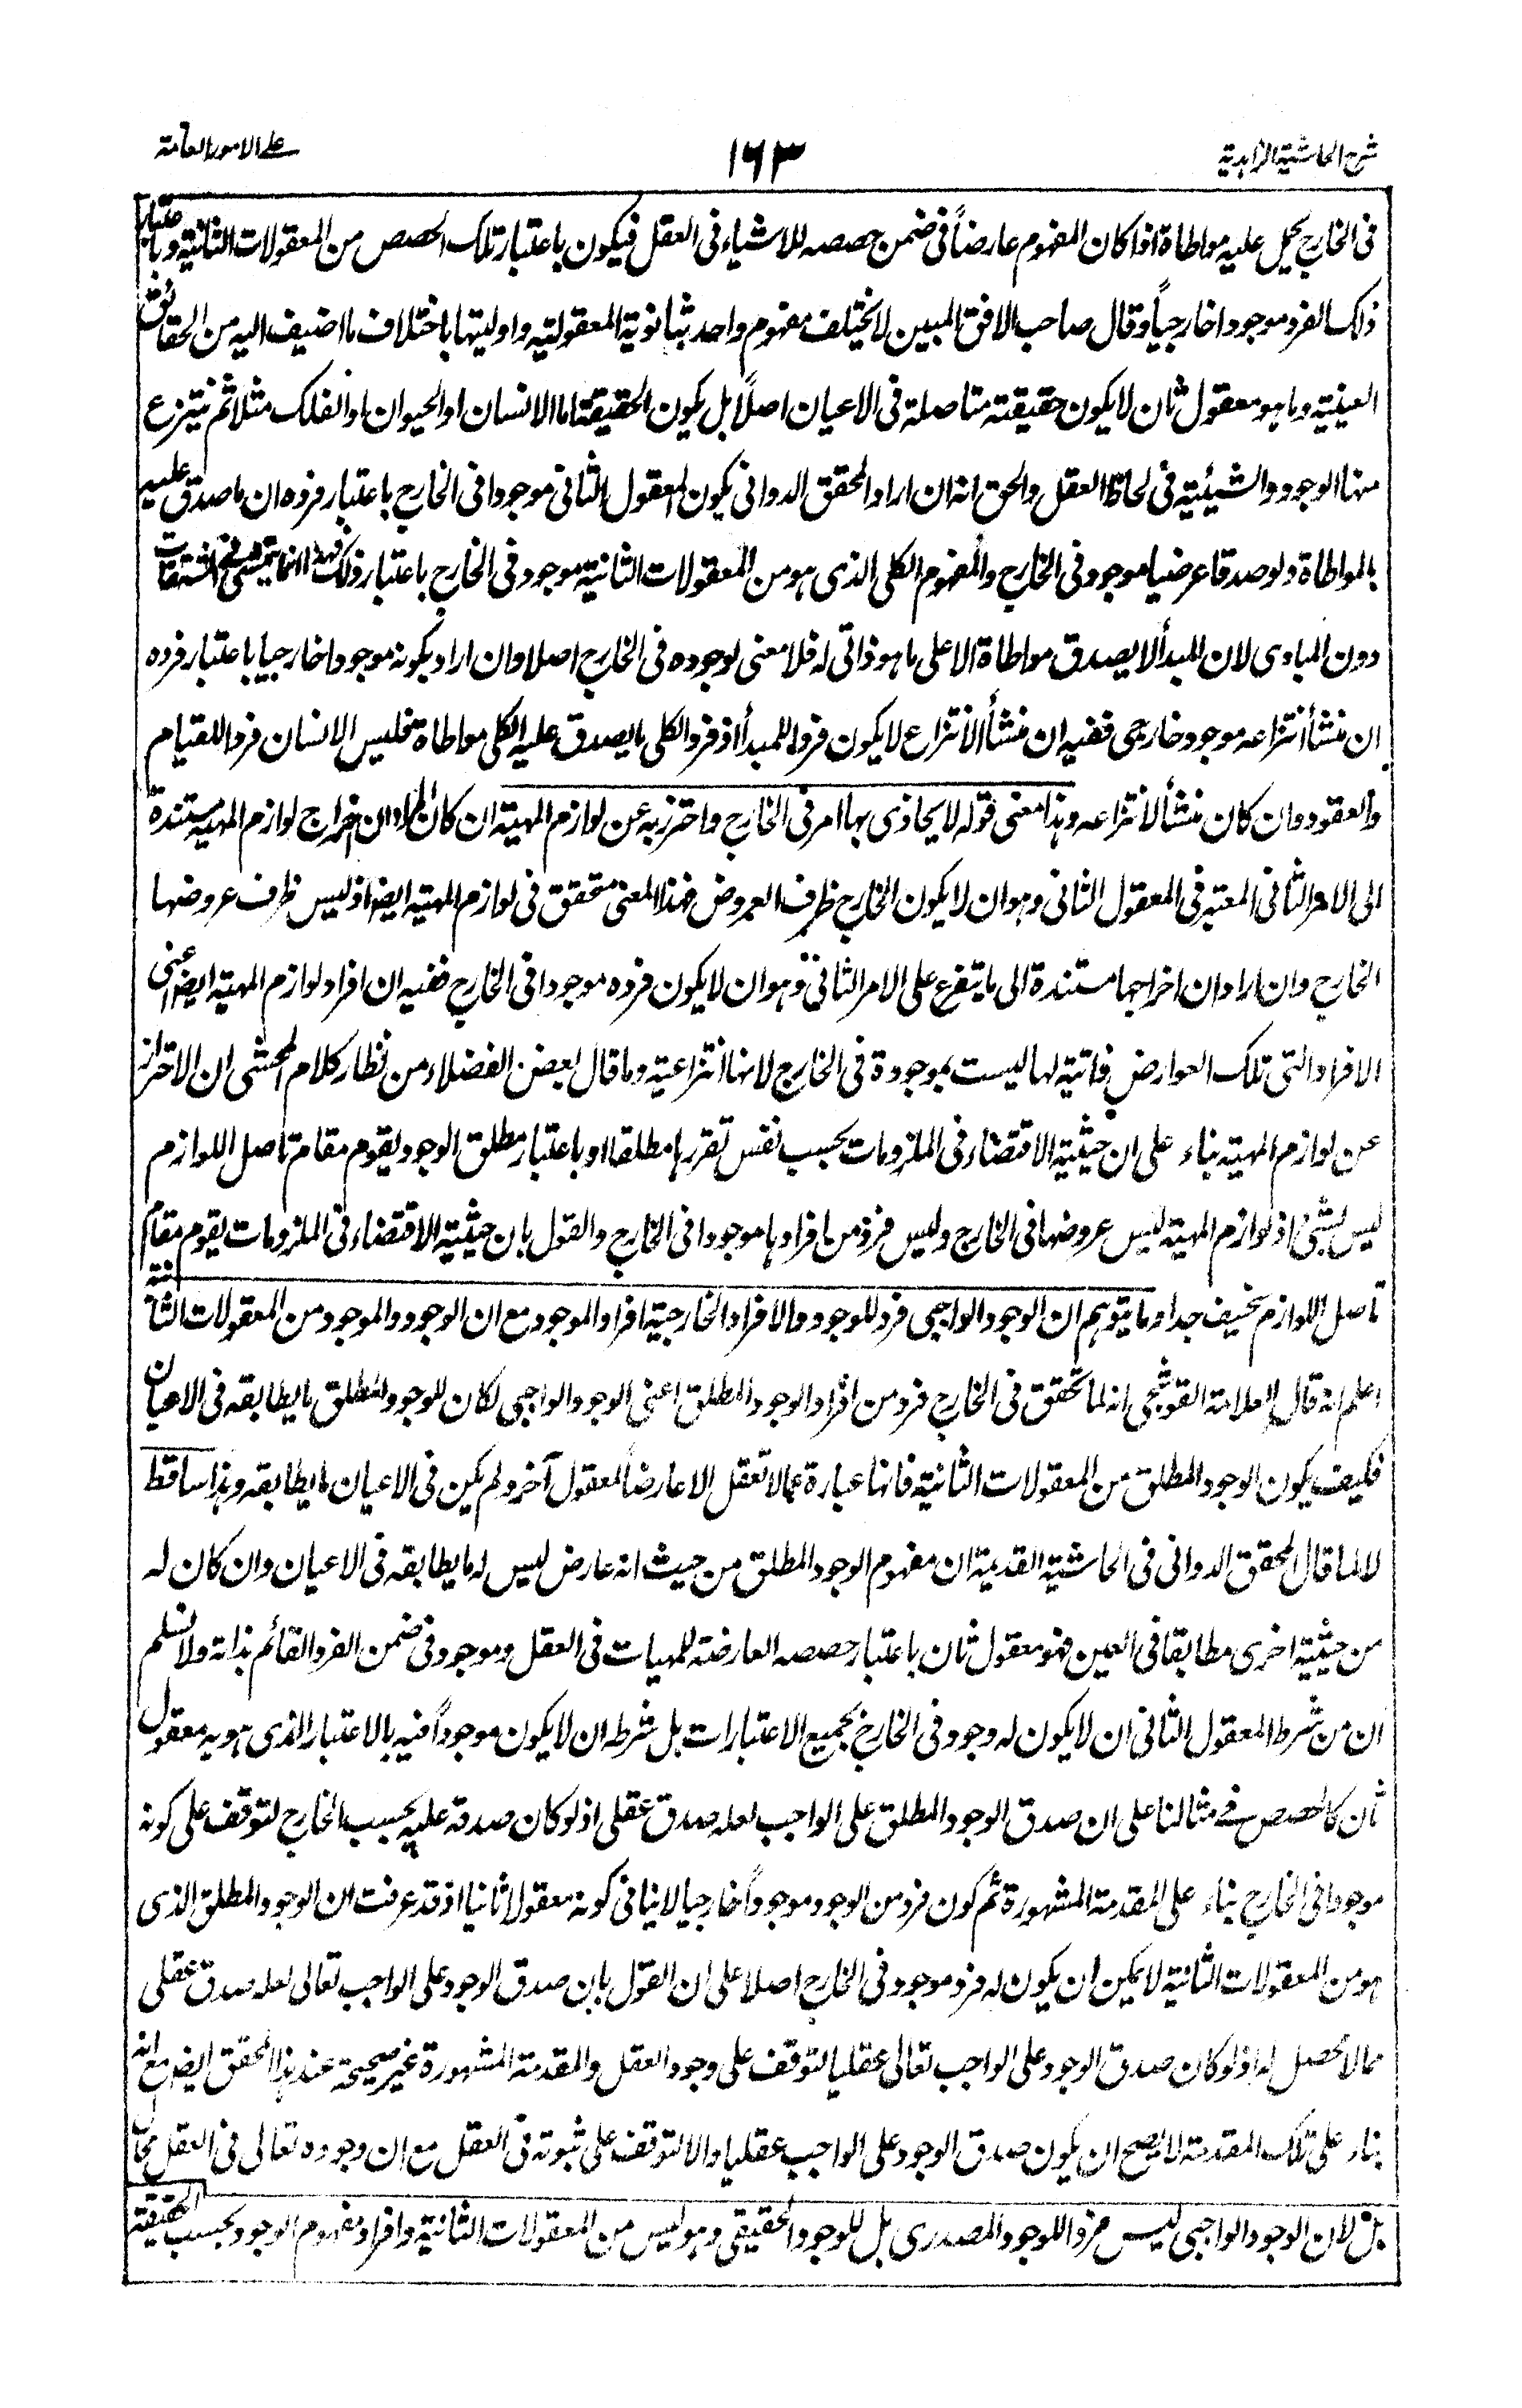 شرح الحاشية الزاهدية
١٦٣
على الامور العامة
فى الخارج يحمل عليه مواطاة اذا كان المفهوم عارضاً فى ضمن حصصه للاشياء فى العقل فيكون باعتبار تلك الحصص من المعقولات الثانية وباعتبار
ذلك الفرد موجودا خارجياً وقال صاحب الافق المبين لا يختلف مفهوم واحد بثانوية المعقولية واوليتها باختلاف ما اضيف اليه من الحقائق
العينية وما هو معقول ثان لا يكون حقيقته متاصلة فى الاعيان اصلاً بل يكون الحقيقة اما الانسان او الحيوان او الفلك مثلا ثم ينتزع
منها الوجود والشيئية فى لحاظ العقل والحق انه ان اراد المحقق الدوانى بكون المعقول الثانى موجودا فى الخارج باعتبار فرده ان ما صدق عليه
بالمواطاة ولو صدقا عرضيا موجود فى الخارج والمفهوم الكلى الذى هو من المعقولات الثانية موجود فى الخارج باعتبار ذلك فهذا انما يتمشى فى المشتقات
دون المبادى لان المبدأ لا يصدق مواطاة الا على ما هو ذاتى له فلا معنى لوجوده فى الخارج اصلا وان اراد بكونه موجودا خارجيا باعتبار فرده
ان منشأ انتزاعه موجود خارجى ففيه ان منشأ الانتزاع لا يكون فردا للمبدأ اذ فرد الكلى ما يصدق عليه الكلى مواطاة فليس الانسان فردا للقيام
والقعود وان كان منشأ لانتزاعه وهذا معنى قوله لا يحاذى بها امر فى الخارج واحترز به عن لوازم المهية ان كان المراد ان اخراج لوازم المهية مستندة
الى الامر الثانى المعتبر فى المعقول الثانى وهو ان لا يكون الخارج ظرف العروض فهذا المعنى متحقق فى لوازم المهية ايضا اذ ليس ظرف عروضها
الخارج وان اراد ان اخراجها مستندة الى ما يتفرع على الامر الثانى وهو ان لا يكون فرده موجودا فى الخارج ففيه ان افراد لوازم المهية ايضا اعنى
الافراد التى تلك العوارض ذاتية لها ليست بموجودة فى الخارج لانها انتزاعية وما قال بعض الفضلاء من نظار كلام المحشى ان الاحتراز
عن لوازم المهية بناء على ان حيثية الاقتضاء فى الملزومات بحسب نفس تقررها مطلقا او باعتبار مطلق الوجود يقوم مقام تاصل اللوازم
ليس بشئ اذ لوازم المهية ليس عروضها فى الخارج وليس فرد من افرادها موجودا فى الخارج والقول بان حيثية الاقتضاء فى الملزومات يقوم مقام
تاصل اللوازم سخيف جدا وما يتوهم ان الوجود الواجبى فرد للوجود والافراد الخارجية افراد الموجود مع ان الوجود والموجود من المعقولات الثانية
اعلم انه قال العلامة القوشجى انه لما تحقق فى الخارج فرد من افراد الوجود المطلق اعنى الوجود الواجبى لكان للوجود المطلق ما يطابقه فى الاعيان
فكيف يكون الوجود المطلق من المعقولات الثانية فانها عبارة عما لا تعقل الا عارضاً لمعقول آخر ولم يكن فى الاعيان ما يطابقه وهذا ساقط
لا لما قال المحقق الدوانى فى الحاشية القديمة ان مفهوم الوجود المطلق من حيث انه عارض ليس له ما يطابقه فى الاعيان وان كان له
من حيثية اخرى مطابقا فى العين فهو معقول ثان باعتبار حصصه العارضة للمهيات فى العقل وموجود فى ضمن الفرد القائم بذاته ولا نسلم
ان من شرط المعقول الثانى ان لا يكون له وجود فى الخارج بجميع الاعتبارات بل شرطه ان لا يكون موجوداً فيه بالاعتبار الذى هو به معقول
ثان كالحصص فى مثالنا على ان صدق الوجود المطلق على الواجب لعله صدق عقلى اذ لو كان صدقه عليه بحسب الخارج لتوقف على كونه
موجودا فى الخارج بناء على المقدمة المشهورة ثم كون فرد من الوجود موجوداً خارجيا لا ينافى كونه معقولا ثانيا اذ قد عرفت ان الوجود المطلق الذى
هو من المعقولات الثانية لا يمكن ان يكون له فرد موجود فى الخارج اصلا على ان القول بان صدق الوجود على الواجب تعالى لعله صدق عقلى
مما لا محصل له اذ لو كان صدق الوجود على الواجب تعالى عقليا لتوقف على وجود العقل والمقدمة المشهورة غير صحيحة عند هذا المحقق ايضا مع انه
بناء على تلك المقدمة لا يصح ان يكون صدق الوجود على الواجب عقليا والا لتوقف على ثبوته فى العقل مع ان وجوده تعالى فى العقل محال
بل لان الوجود الواجبى ليس فردا للوجود المصدرى بل للوجود الحقيقى وهو ليس من المعقولات الثانية وافراد مفهوم الوجود بحسب الحقيقة